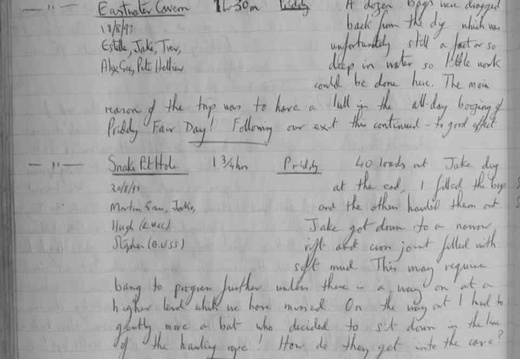 — " — Eastwater Cavern 1h 30m Priddy A dozen bags were dragged
18/8/93 back from the dig which was
Estelle, Jake, Trev, unfortunately still a foot or so
Alex Gee, Pete Hellier deep in water so little work
could be done here. The main
reason of the trip was to have a lull in the all-day boozing of
Priddy Fair Day! Following our exit this continued - to good effect
— " — Snake Pit Hole 1 3/4 hrs Priddy 40 loads out. Jake dug
20/8/93 at the end, I filled the bags
Martin Jake, and the others hauled them out
Hugh Jake got down to a narrow
Stephen rift and cross joint filled with
soft mud. This may require
bang to progress further unless there is a way on at a
higher level which we have missed. On the way out I had to
gently move a bat who decided to sit down in the
of the hauling rope! How do they get into the cave?